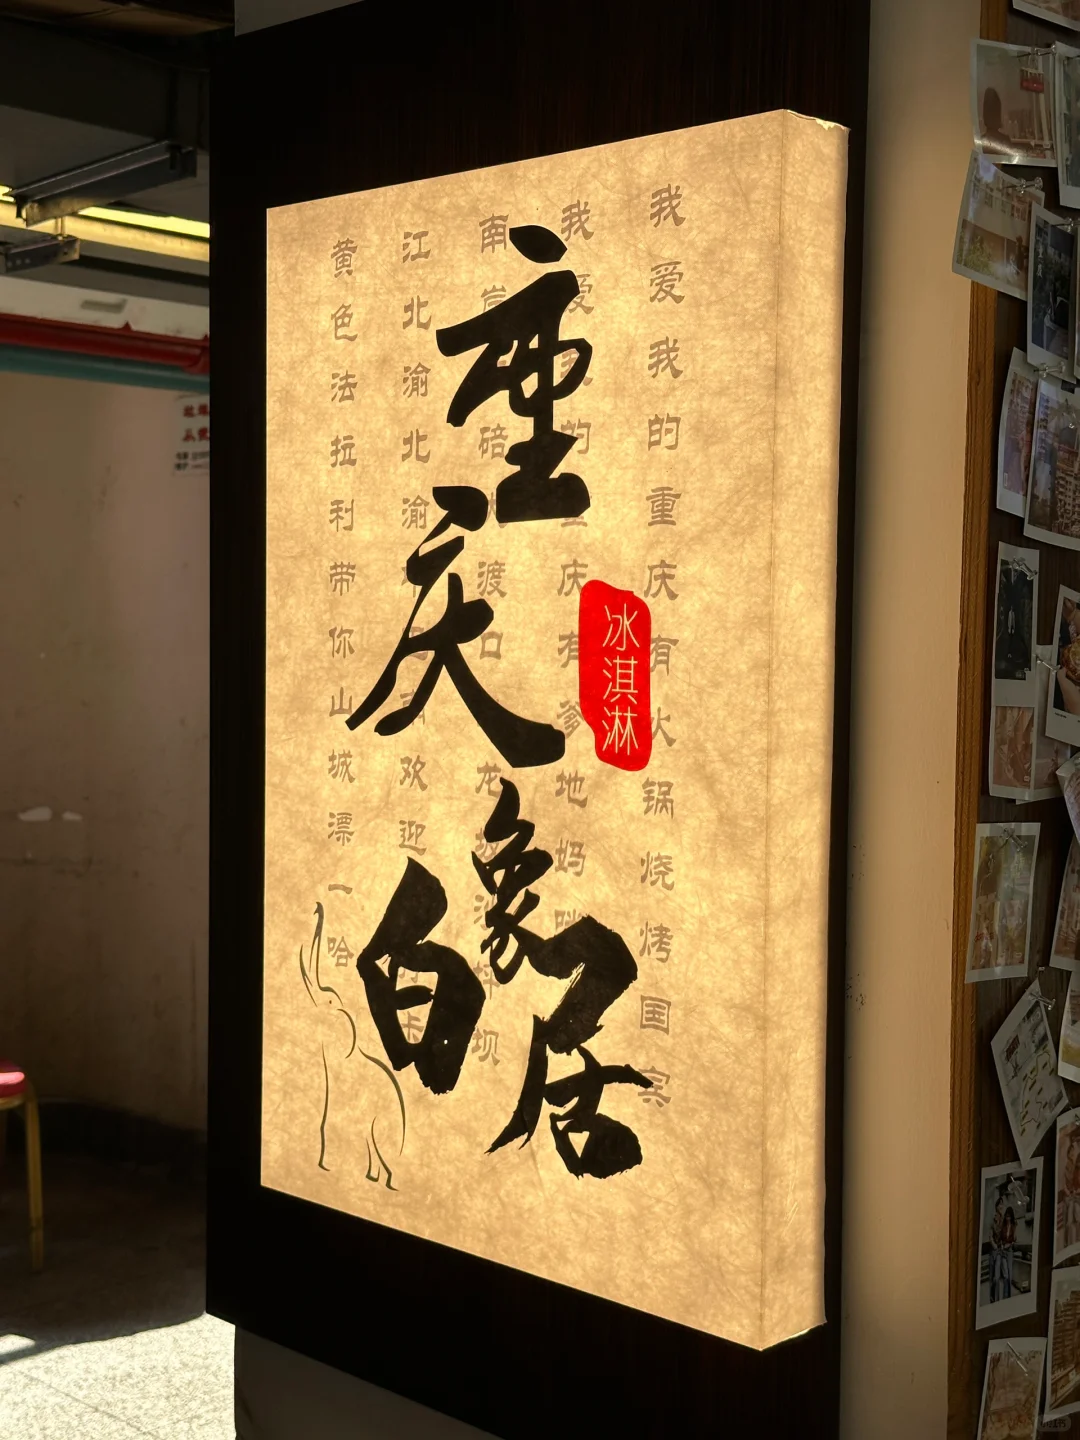 重庆
白象居
冰淇淋
我爱我的重庆有火锅烧烤国宾
我爱我的重庆有爹地妈咪
南岸碚大渡口龙坡沙坪坝
江北渝北渝欢迎卡
黄色法拉利带你山城漂一哈